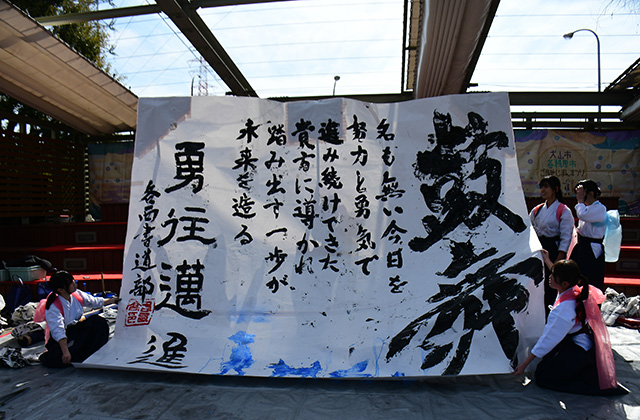 鼓舞
名も無い今日を
努力と勇気で
進み続けてきた
貴方に導かれ
踏み出す一歩が
未来を造る
勇往邁進
西書道部
犬山市